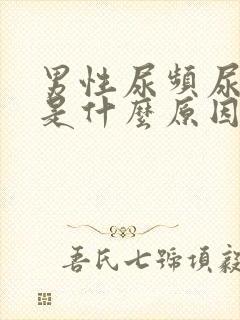 男性尿頻尿
是什麼原因
吾氏七號項毅